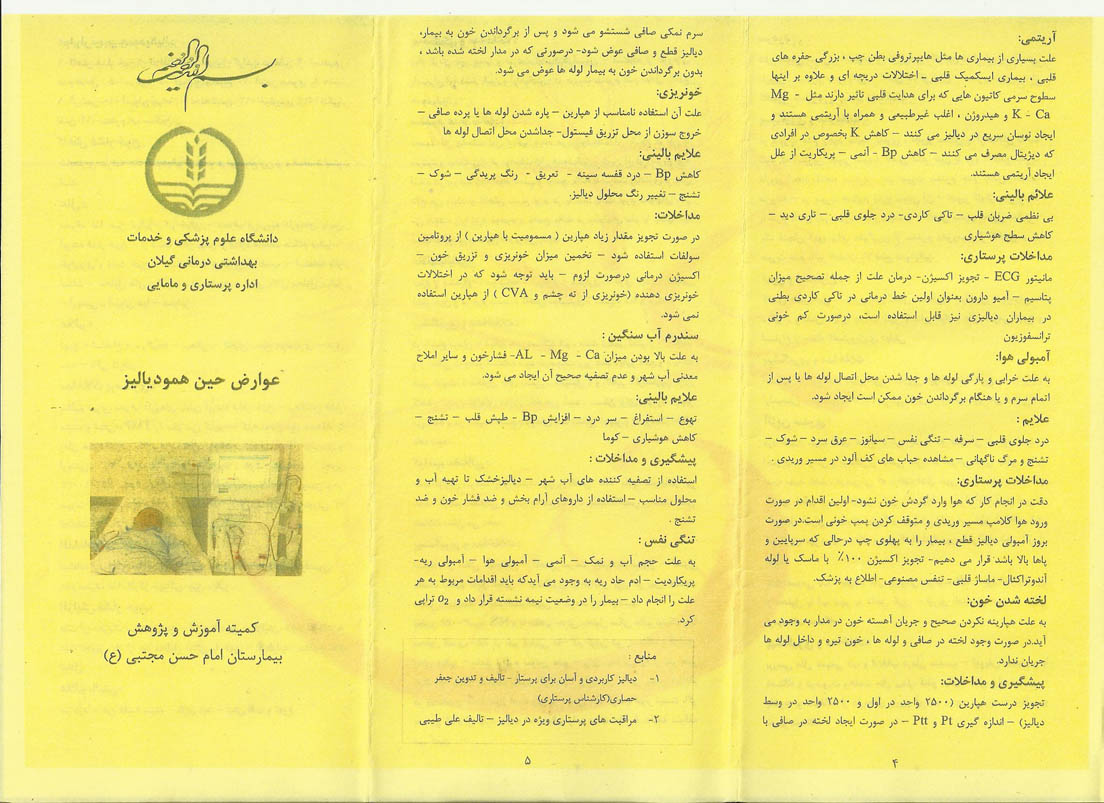 آریتمی:
علت بسیاری از بیماری ها مثل هایپرتروفی بطن چپ ، بزرگی حفره های
قلبی ، بیماری ایسکمیک قلبی – اختلالات دریچه ای و علاوه بر اینها
سطوح سرمی کاتیون هایی که برای هدایت قلبی تاثیر دارند مثل - Mg
K - Ca و هیدروژن ، اغلب غیرطبیعی و همراه با آریتمی هستند و
ایجاد نوسان سریع در دیالیز می کنند – کاهش K بخصوص در افرادی
که دیژیتال مصرف می کنند – کاهش Bp - آنمی – پریکاریت از علل
ایجاد آریتمی هستند.
علائم بالینی:
بی نظمی ضربان قلب – تاکی کاردی- درد جلوی قلبی – تاری دید –
کاهش سطح هوشیاری
مداخلات پرستاری:
مانیتور ECG - تجویز اکسیژن- درمان علت از جمله تصحیح میزان
پتاسیم – آمیو دارون بعنوان اولین خط درمانی در تاکی کاردی بطنی
در بیماران دیالیزی نیز قابل استفاده است، درصورت کم خونی
ترانسفوزیون
آمبولی هوا:
به علت خرابی و پارگی لوله ها و جدا شدن محل اتصال لوله ها یا پس از
اتمام سرم و یا هنگام برگرداندن خون ممکن است ایجاد شود.
علایم :
درد جلوی قلبی – سرفه – تنگی نفس – سیانوز – عرق سرد – شوک –
تشنج و مرگ ناگهانی – مشاهده حباب های کف آلود در مسیر وریدی .
مداخلات پرستاری:
دقت در انجام کار که هوا وارد گردش خون نشود- اولین اقدام در صورت
ورود هوا کلامپ مسیر وریدی و متوقف کردن پمپ خونی است.در صورت
بروز آمبولی دیالیز قطع ، بیمار را به پهلوی چپ درحالی که سرپایین و
پاها بالا باشد قرار می دهیم- تجویز اکسیژن ۱۰۰٪ با ماسک یا لوله
آندوتراکئال- ماساژ قلبی- تنفس مصنوعی- اطلاع به پزشک.
لخته شدن خون:
به علت هپارینه نکردن صحیح و جریان آهسته خون در مدار به وجود می
آید.در صورت وجود لخته در صافی و لوله ها ، خون تیره و داخل لوله ها
جریان ندارد.
پیشگیری و مداخلات:
تجویز درست هپارین (۲۵۰۰ واحد در اول و ۲۵۰۰ واحد در وسط
دیالیز) – اندازه گیری Pt و Ptt – در صورت ایجاد لخته در صافی با
۴
سرم نمکی صافی شستشو می شود و پس از برگرداندن خون به بیمار،
دیالیز قطع و صافی عوض شود- درصورتی که در مدار لخته شده باشد ،
بدون برگرداندن خون به بیمار لوله ها عوض می شود.
خونریزی:
علت آن استفاده نامناسب از هپارین – پاره شدن لوله ها یا پرده صافی –
خروج سوزن از محل تزریق فیستول- جداشدن محل اتصال لوله ها
علایم بالینی:
کاهش Bp – درد قفسه سینه - تعریق - رنگ پریدگی – شوک –
تشنج – تغییر رنگ محلول دیالیز.
مداخلات:
در صورت تجویز مقدار زیاد هپارین ( مسمومیت با هپارین ) از پروتامین
سولفات استفاده شود – تخمین میزان خونریزی و تزریق خون –
اکسیژن درمانی درصورت لزوم – باید توجه شود که در اختلالات
خونریزی دهنده (خونریزی از ته چشم و CVA ) از هپارین استفاده
نمی شود.
سندرم آب سنگین :
به علت بالا بودن میزان AL - Mg - Ca- فشارخون و سایر املاح
معدنی آب شهر و عدم تصفیه صحیح آن ایجاد می شود.
علایم بالینی:
تهوع – استفراغ – سر درد – افزایش Bp - طپش قلب – تشنج –
کاهش هوشیاری – کوما
پیشگیری و مداخلات :
استفاده از تصفیه کننده های آب شهر – دیالیزخشک تا تهیه آب و
محلول مناسب – استفاده از داروهای آرام بخش و ضد فشار خون و ضد
تشنج .
تنگی نفس :
به علت حجم آب و نمک – آنمی – آمبولی هوا – آمبولی ریه-
پریکاردیت – ادم حاد ریه به وجود می آیدکه باید اقدامات مربوط به هر
علت را انجام داد – بیمار را در وضعیت نیمه نشسته قرار داد و o₂ تراپی
کرد.
منابع :
۱- دیالیز کاربردی و آسان برای پرستار - تالیف و تدوین جعفر
حصاری(کارشناس پرستاری)
۲- مراقبت های پرستاری ویژه در دیالیز – تالیف علی طیبی
۵
بسم الله الرحمن الرحیم
دانشگاه علوم پزشکی و خدمات
بهداشتی درمانی گیلان
اداره پرستاری و مامایی
عوارض حین همودیالیز
کمیته آموزش و پژوهش
بیمارستان امام حسن مجتبی (ع)